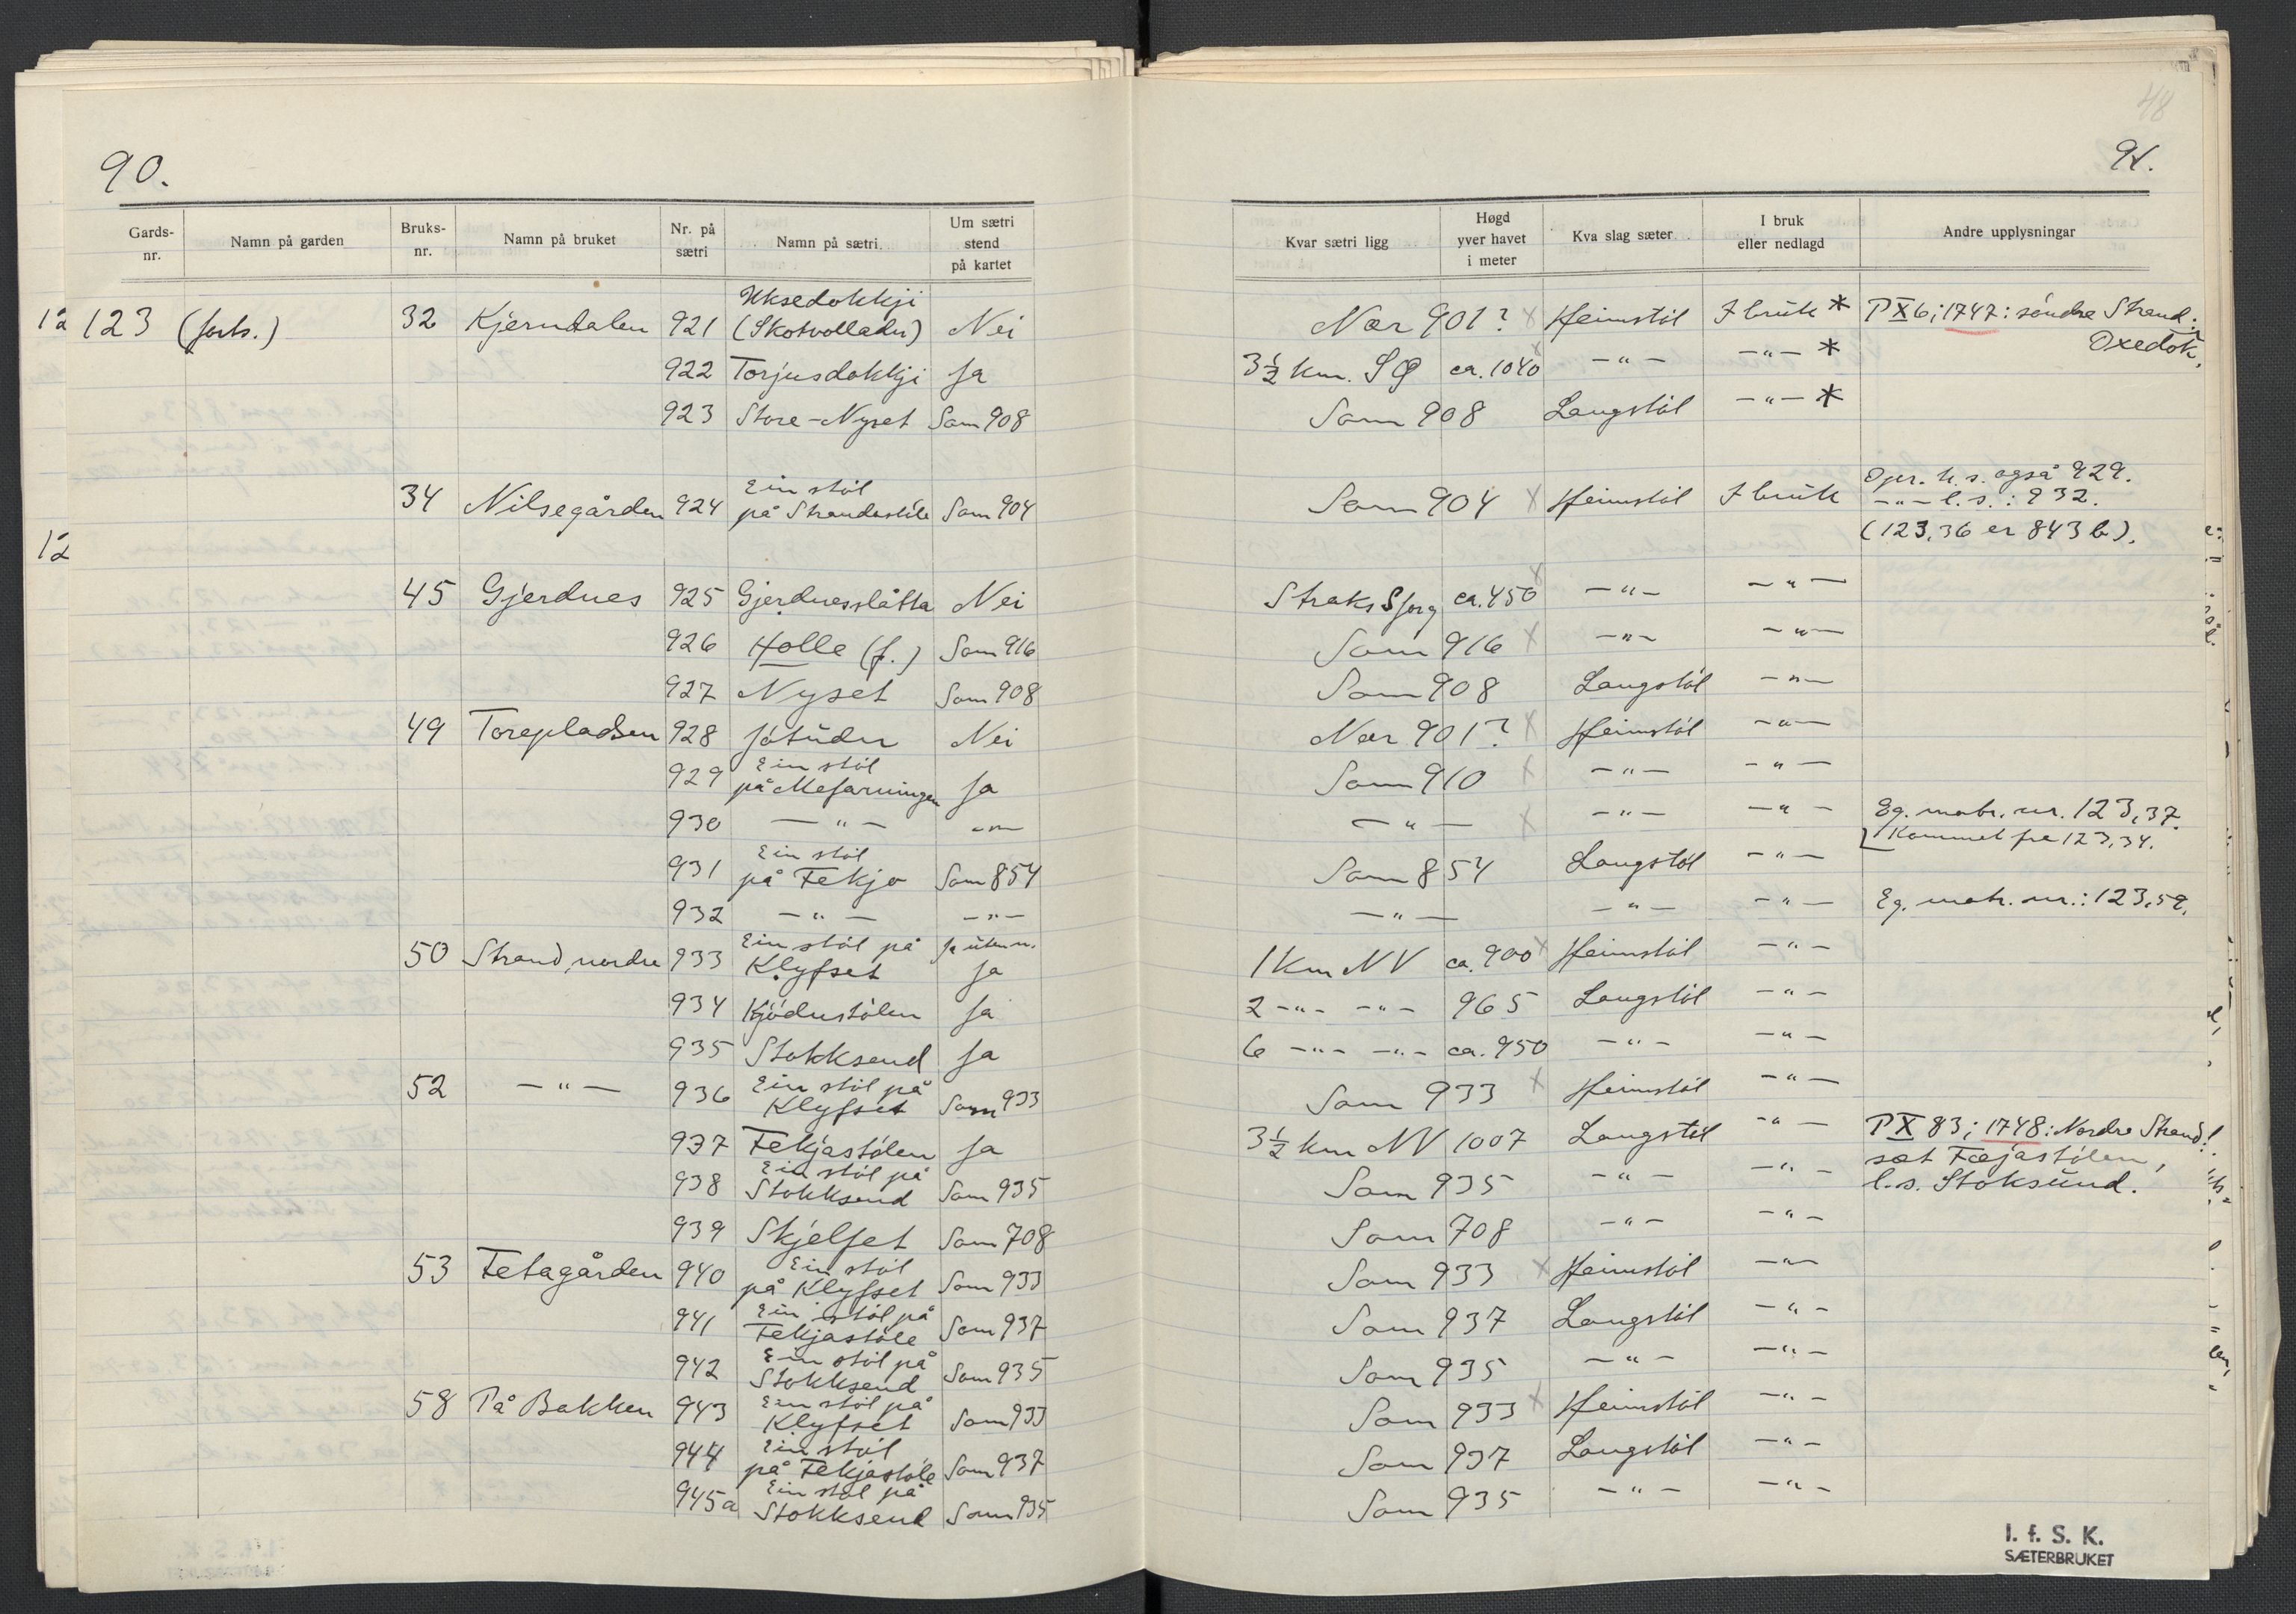 90.
Gards-nr. Namn på garden Bruks-nr. Namn på bruket Nr. på sætri Namn på sætri Um sætri stend på kartet
123 (forts.) 32 Kjerndalen 921 Uksedokkji (Skotvolladn) Nei
922 Torjusdokkji Ja
923 Store-Nyset Som 908
34 Nilsegården 924 Ein stöl på Strandastöle Som 904
45 Gjerdnes 925 Gjerdnesslåtta Nei
926 Holle (f.) Som 916
927 Nyset Som 908
49 Torepladsen 928 Jötúdn Nei
929 Ein stöl på Mefarningen Ja
930 — " — — " —
931 Ein stöl på Fekjo Som 854
932 — " — — " —
50 Strand, nordre 933 Ein stöl på Klyfset Ja uten n. Ja
934 Kjödnstölen Ja
935 Stokksend Ja
52 — " — 936 Ein stöl på Klyfset Som 933
937 Fekjastölen Ja
938 Ein stöl på Stokksend Som 935
939 Skjelset Som 708
53 Fetagården 940 Ein stöl på Klyfset Som 933
941 Ein stöl på Fekjastöle Som 937
942 Ein stöl på Stokksend Som 935
58 På Bakken 943 Ein stöl på Klyfset Som 933
944 Ein stöl på Fekjastöle Som 937
945a Ein stöl på Stokksend Som 935
48
91.
Kvar sætri ligg Høgd yver havet i meter Kva slag sæter I bruk eller nedlagd Andre upplysningar
Nær 901? x Heimstöl I bruk * PX 6; 1747: söndre Strand: Oxedok.
3½ km. SØ ca. 1040 x — " — — " — *
Som 908 Langstöl — " — *
Som 904 x Heimstöl I bruk Opr. h.s. også 929.
— " — l.s.: 932.
(123,36 er 843 b).
Straks S for g ca. 450 x — " — — " —
Som 916 x — " — — " —
Som 908 Langstöl — " —
Nær 901? x Heimstöl — " —
Som 910 x — " — — " —
— " — x — " — — " — Eg. matr. nr. 123,37.
Kommet fra 123,34.
Som 854 Langstöl — " —
— " — — " — — " — Eg. matr. nr.: 123,59.
1 km NV ca. 900 x Heimstöl — " —
2 — " — — " — 965 Langstöl — " —
6 — " — — " — ca. 950 — " — — " —
Som 933 x Heimstöl — " —
3½ km NV 1007 Langstöl — " — PX 83; 1748: Nordre Strand:
sæt Fæjastölen,
l.s. Stoksund.
Som 935 — " — — " —
Som 708 — " — — " —
Som 933 x Heimstöl — " —
Som 937 Langstöl — " —
Som 935 — " — — " —
Som 933 x Heimstöl — " —
Som 937 Langstöl — " —
Som 935 — " — — " —
I. f. S. K.
SÆTERBRUKET